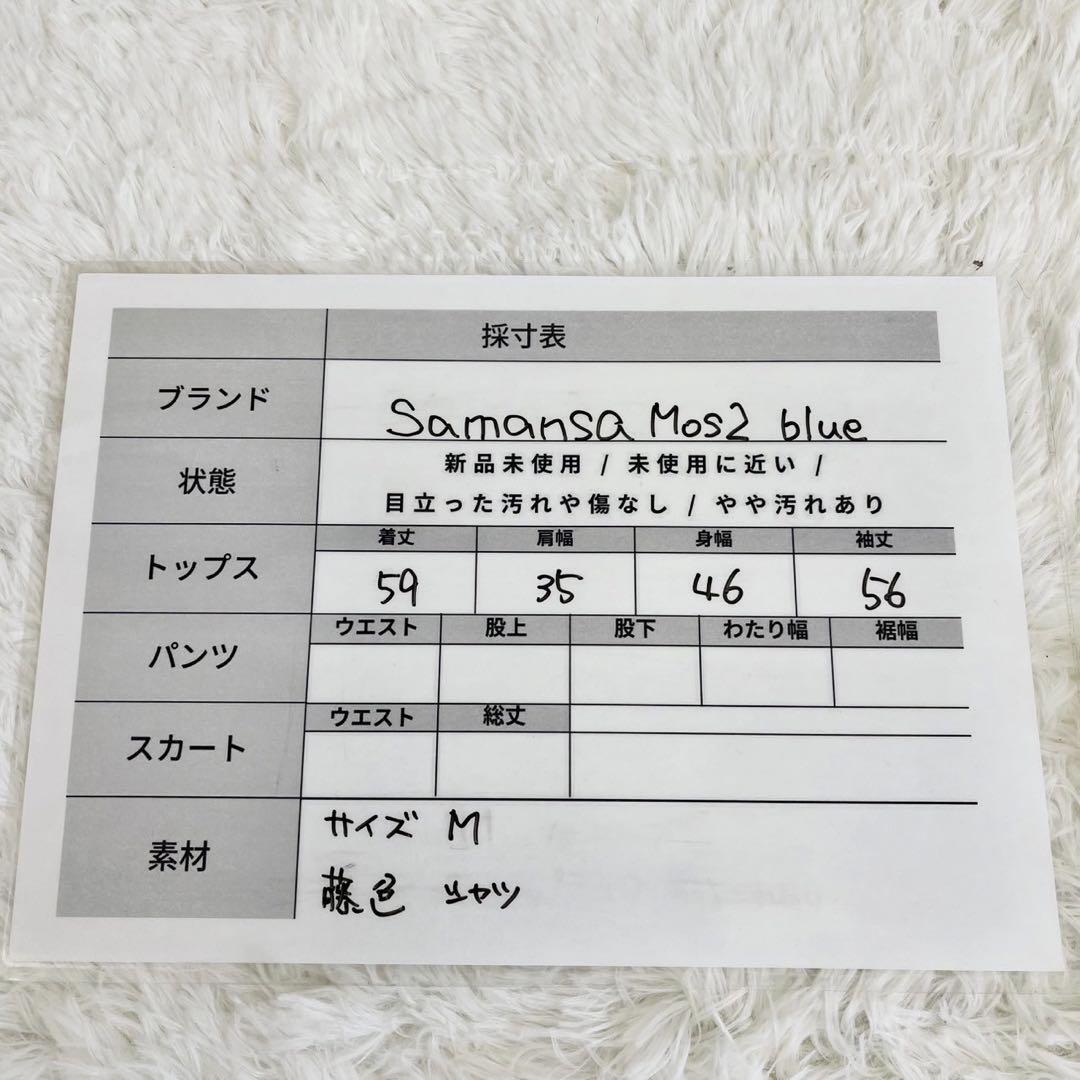 採寸表
ブランド
Samansa Mos2 blue
状態
新品未使用 / 未使用に近い /
目立った汚れや傷なし / やや汚れあり
トップス
着丈 肩幅 身幅 袖丈
59 35 46 56
パンツ
ウエスト 股上 股下 わたり幅 裾幅
スカート
ウエスト 総丈
素材
サイズ M
藤色 シャツ